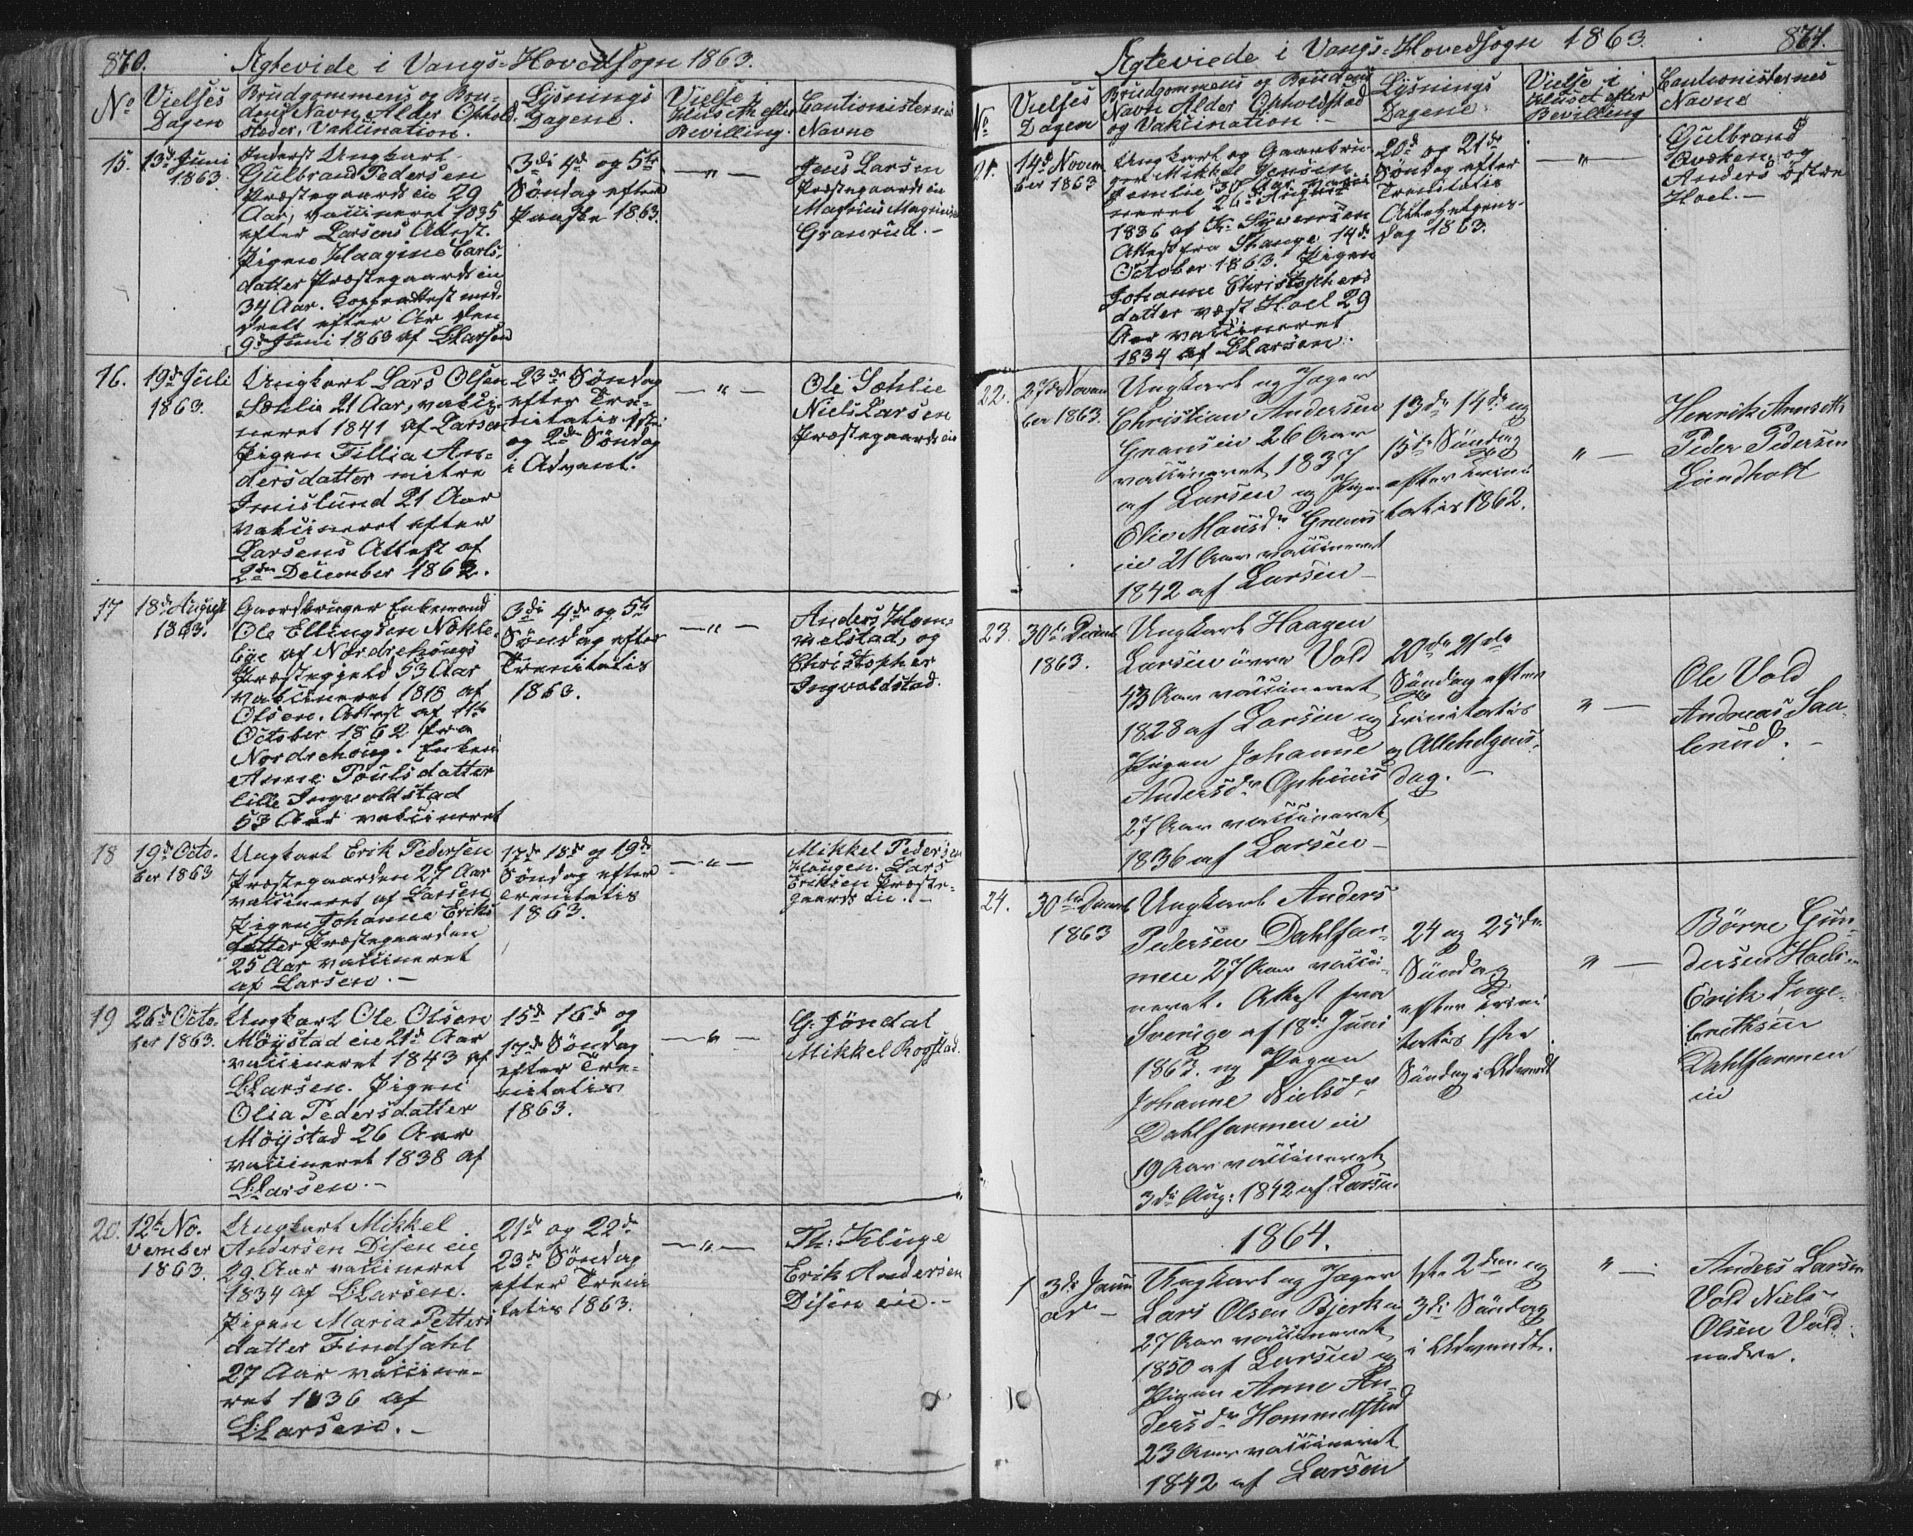 870. Ægteviede i Vangs-Hovedsogn 1863.
No
Vielses
Dagen
Brudgommens og Bru-
dens Navn, Alder, Ophold
steder, Vakcination.
Lysnings
Dagene.
Vielse i
Huset efter
Bevilling.
Cautionisternes
Navne
15.
13de Juni
1863.
Inderst Ungkarl
Gulbrand Pedersen
Præstegaards eie 29
Aar, vaccineret 1835
efter Larsens Attest.
Pigen Haagine Carls-
datter Præstegaards ein
34 Aar. Koppeattest med-
deelt efter Ar den
9de Juni 1863 af LLarsen
3di 4de og 5te
Søndag efter
Paaske 1863.
— " —
Jens Larsen
Præstegaards eie
Magnus Magnus
Granrud. —
16.
19de Juli
1863.
Ungkarl Lars Olsen
Sæhlie 21 Aar, vakci-
neret 1841 af Larsen
Pigen Tillia An-
dersdatter nitre
Imislund 21 Aar
vakcineret efter
Larsens Attest af
2den December 1862.
23de Søndag
efter Tre-
nitatis 1ste
og 2den Søndag
i Advent.
— " —
Ole Sæhlie
Niels Larsen
Præstegaards eie
17
18de August
1863.
Gaardbruger Enkemand
Ole Ellingsen Nøkle-
bye af Nordrehougs
Præstegjeld 53 Aar
vakcineret 1818 af
Olsen. Attest af 11te
October 1862 fra
Nordrehoug. Enken
Anne Poulsdatter
lille Ingvoldstad
53 Aar vakcineret
3di 4de og 5te
Søndag efter
Trenitatis
1863.
— " —
Anders Hom-
melstad, og
Christopher
Ingvoldstad.
18
19de Octo-
ber 1863
Ungkarl Erik Pedersen
Præstegaarden 27 Aar
vaccineret af Larsen
Pigen Johanne Eriks
datter Præstegaarden
25 Aar vaccineret
af Larsen. —
17de 18de og 19de
Søndag efter
Trenitatis
1863.
— " —
Mikkel Pedersen
Haugen. Lars
Eriksen Præste-
gaards eie. —
19
26de Octo-
ber 1863.
Ungkarl Ole Olsen
Møystad eie 21de Aar
vaccineret 1843 af
LLarsen. Pigen
Olia Pedersdatter
Møystad 26 Aar
vaccineret 1838 af
LLarsen. —
15de 16de og
17de Søndag
efter Tre-
nitatis
1863.
— " —
G. Jøndal
Mikkel Rogstad.
20.
12te No-
vember
1863.
Ungkarl Mikkel
Andersen Disen eie
29 Aar vaccineret
1834 af LLarsen.
Pigen Maria Petters
datter Findsahl
27 Aar vaccine-
ret 1836 af
LLarsen. —
21de og 22de
23de Søndag
efter Treni
tatis 1863.
— " —
Th: Kluge
Erik Andersen
Disen eie. —
Ægteviede i Vangs-Hovedsogn 1863. 871.
No
Vielses
Dagen
Brudgommens og Brudens
Navn Alder Opholdsted
og Vakcination. —
Lysnings
Dagene.
Vielse i
Huset efter
Bevilling
Cautionisternes
Navne
21.
14de Novem
ber 1863
Ungkarl og Gaardbru-
ger Mikkel Jensen
30 Aar vacci
neret 26de August
1836 af Fr. Syversen
Attest fra Stange 14de
October 1863. Pigen
Johanne Christophers
datter vest Hoel 29
Aar vaccineret
1834 af LLarsen.
20de og 21de
Søndag efter
Trenitatis
Allehelgens-
Dag 1863.
— " —
Gulbrand
og
Anders østre
Hoel. —
22.
27de Novem
ber 1863.
Ungkarl og Jager
Christian Andersen
Granseie 26 Aar
vaccineret 1837
af Larsen og Pigen
Olie Mansdr Grans
eie 21 Aar vaccineret
1842 af Larsen —
13de 14de og
15de Søndag
efter Trini
tatis 1862.
" —
Henrik Arnseth
Peder Pedersen
Lundholt
23.
30de Decemb
1863.
Ungkarl Haagen
Larsen øvre Vold
43 Aar vaccineret
1828 af Larsen og
Pigen Johanne
Andersdr Ophuus
27 Aar vaccineret
1836 af Larsen —
20de 21de
Søndag efter
Trinitatis
og Allehelgens-
dag. —
" —
Ole Vold
Andreas Saa-
lerud. —
24.
30te Decemb
1863
Ungkarl Anders
Pedersen Dahlfar-
men 27 Aar vacci-
neret. Attest fra
Sverige af 18de Juni
1863. og Pigen
Johanne Nielsdr
Dahlfarmen eie
19 Aar vaccineret
3de Aug: 1842 af Larsen
24 og 25de
Søndag
efter Trini
tatis 1ste
Søndag i Advendt
" —
Børre Gun-
dersen Hoels-
Erik Inge-
brethsen
Dahlfarmen
eie
1864.
1
3de Janu
ar —
Ungkarl og Jager
Lars Olsen Bjerke
27 Aar vaccineret
1850 af Larsen og
Pigen Anne An-
dersdr Hommelstad
23 Aar vaccineret
1842 af Larsen
1ste 2den og
3di Søndag
i Advendt.
" —
Anders Larsen
Vold Niels
Olsen Vold
nedre.